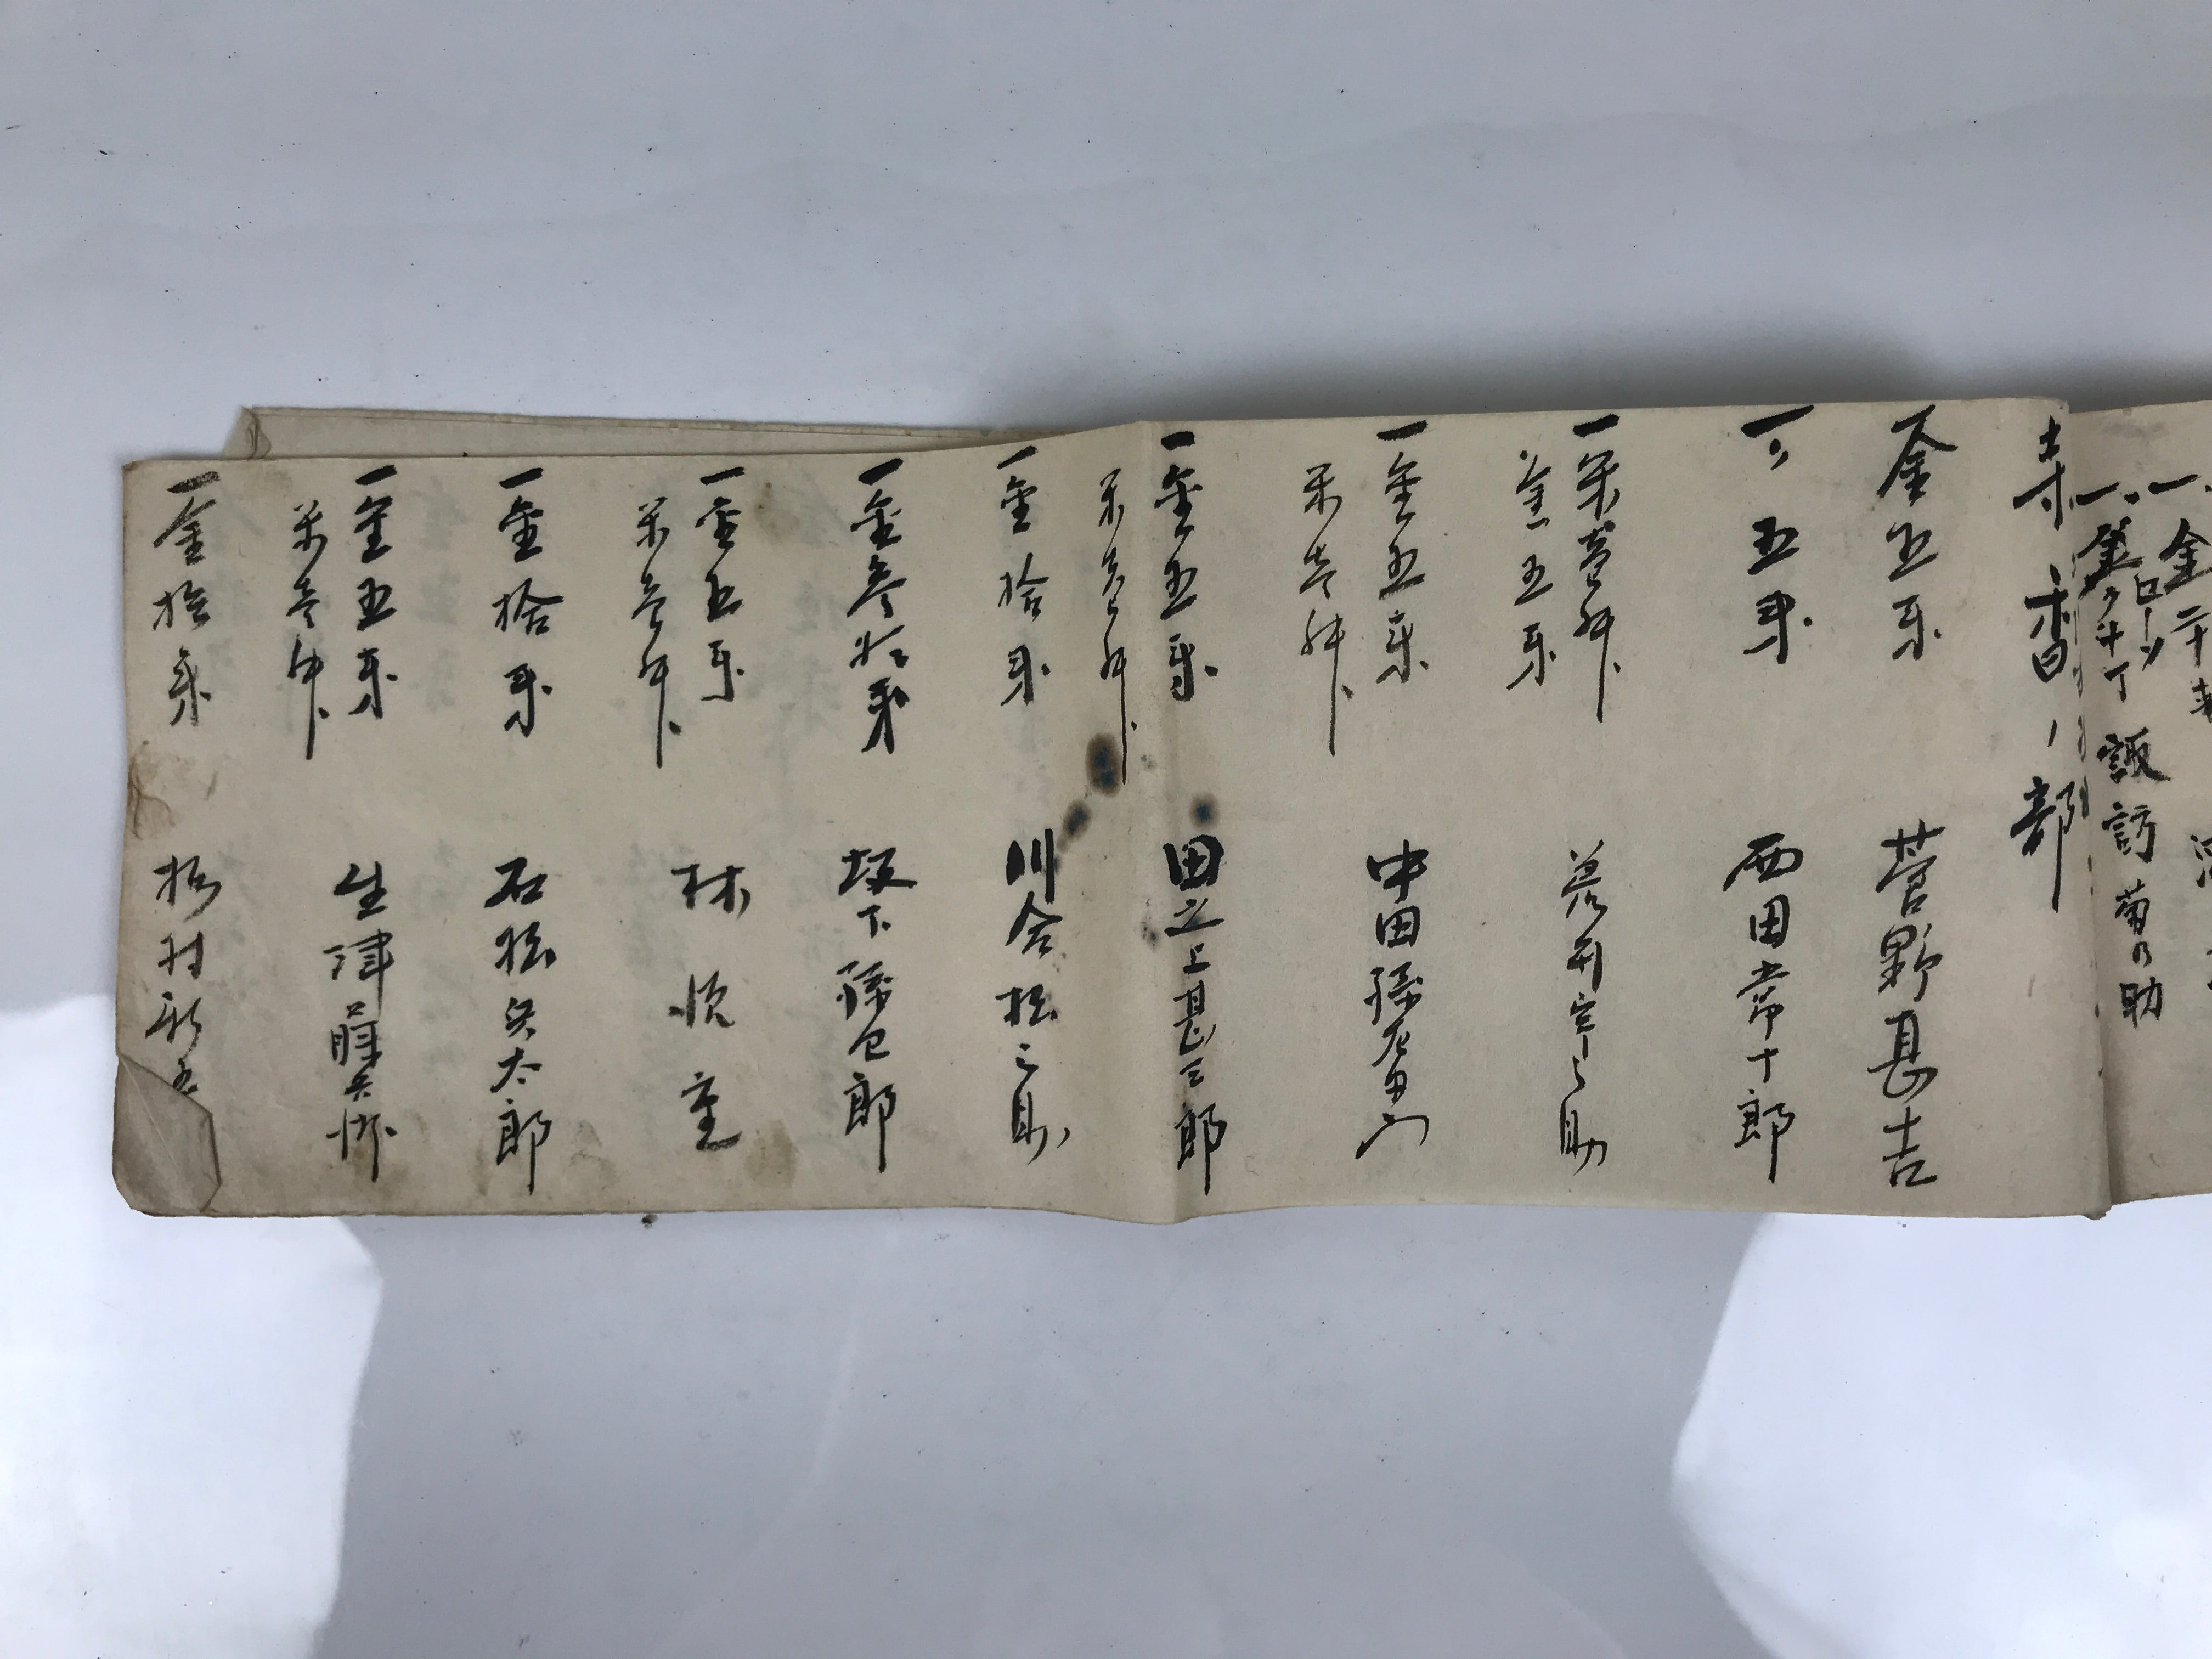 一金二十銭
ローソク
一金二十丁 諏訪菊乃助
寺香ノ部
一金五銭 菅野甚吉
一〃五銭 西田常十郎
一米壱升
金五銭 之助
一金五銭 中田孫右衛門
米壱升
一金五銭 田之上甚三郎
米壱升
一金拾銭 川合松之助
一金参拾銭 坂下孫四郎
一金五銭 林
米壱升
一金拾銭 石松兵太郎
一金五銭 生津藤兵衛
米壱升
一金拾銭 村新